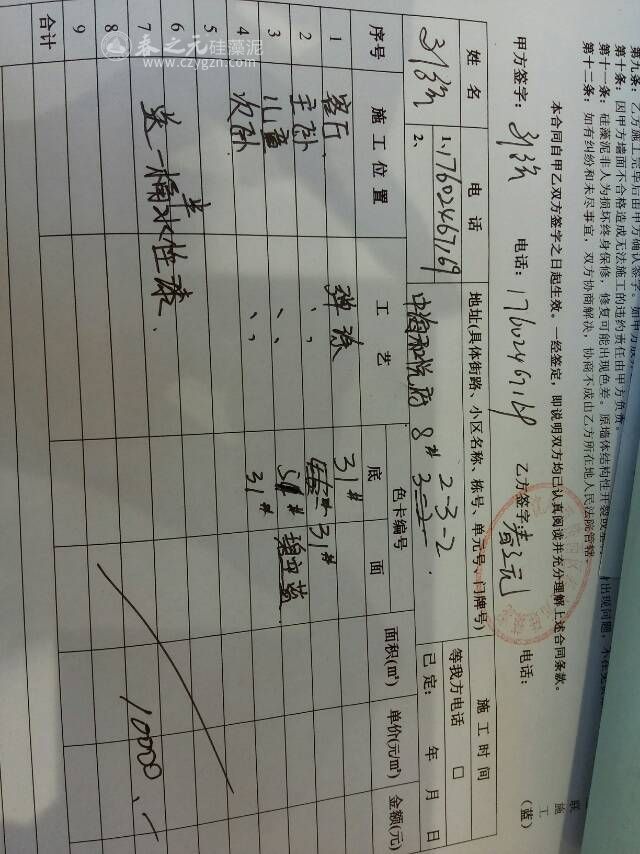 第九条：乙方施工完毕后由甲方确认签字。如甲方
第十条：因甲方墙面不合格造成无法施工的违约责任由甲方负责。
第十一条：硅藻泥非人为损坏终身保修，修复可能出现色差。原墙体结构性开裂
出现问题，不在
第十二条：如有纠纷和未尽事宜，双方协商解决，协商不成由乙方所在地人民法院管辖
本合同自甲乙双方签字之日起生效。一经签定，即说明双方均已认真阅读并充分理解上述合同条款。
甲方签字： 电话：17602467169 乙方签字：春之元 电话：
联
施
工
(蓝)
姓 名 电 话 地址(具体街路、小区名称、栋号、单元号、门牌号) 施 工 时 间
1、17602467169 中海和悦府 8# 2-3-2 等我方电话 □
2、 3-2 已定： 年 月 日
序号 施 工 位 置 工 艺 色卡编号 面积(㎡) 单价(元/㎡) 金额(元)
底 面
1 客厅 弹涂 31#
2 主卧 、、 31#
3 儿童 、、 5#
4 次卧 、、 31#
5
6
7 送一桶水性漆. 10000.
8
9
合计
春之元硅藻泥
www.czygzn.com